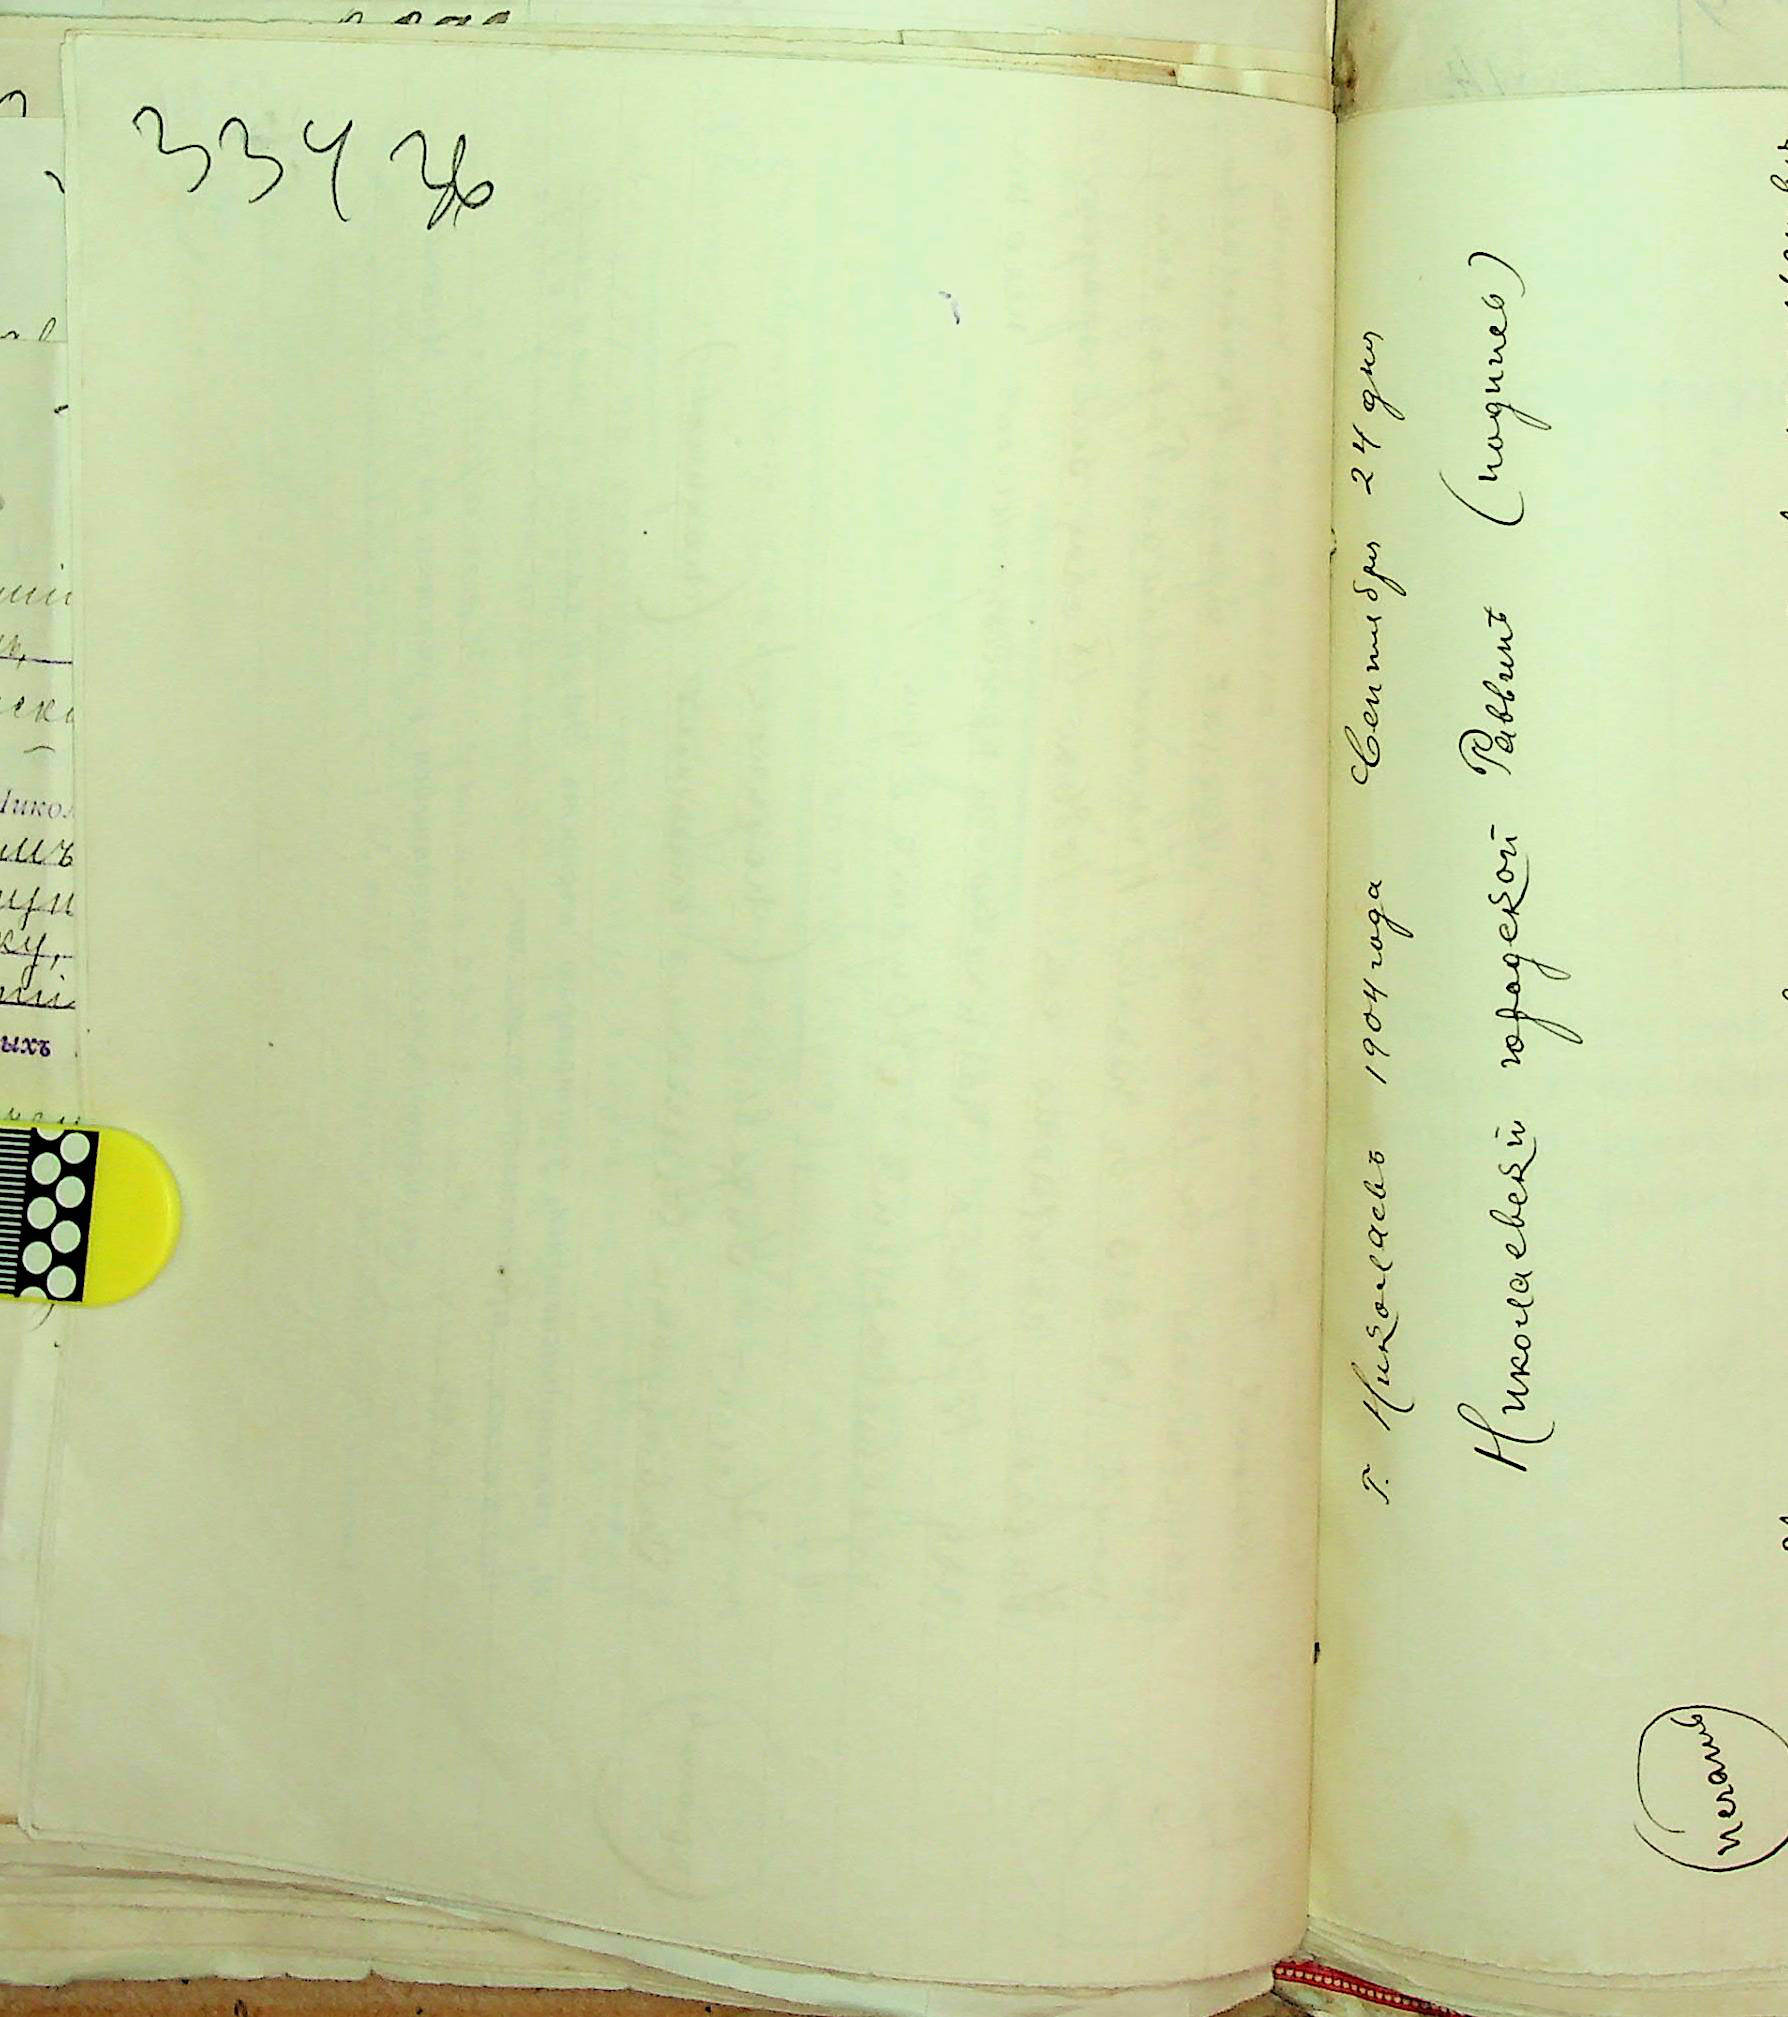 334 об
г. Николаевъ 1904 года Сентября 24 дня
Николаевскій городской Раввинъ (подпись)
печать
Никол
ыхъ